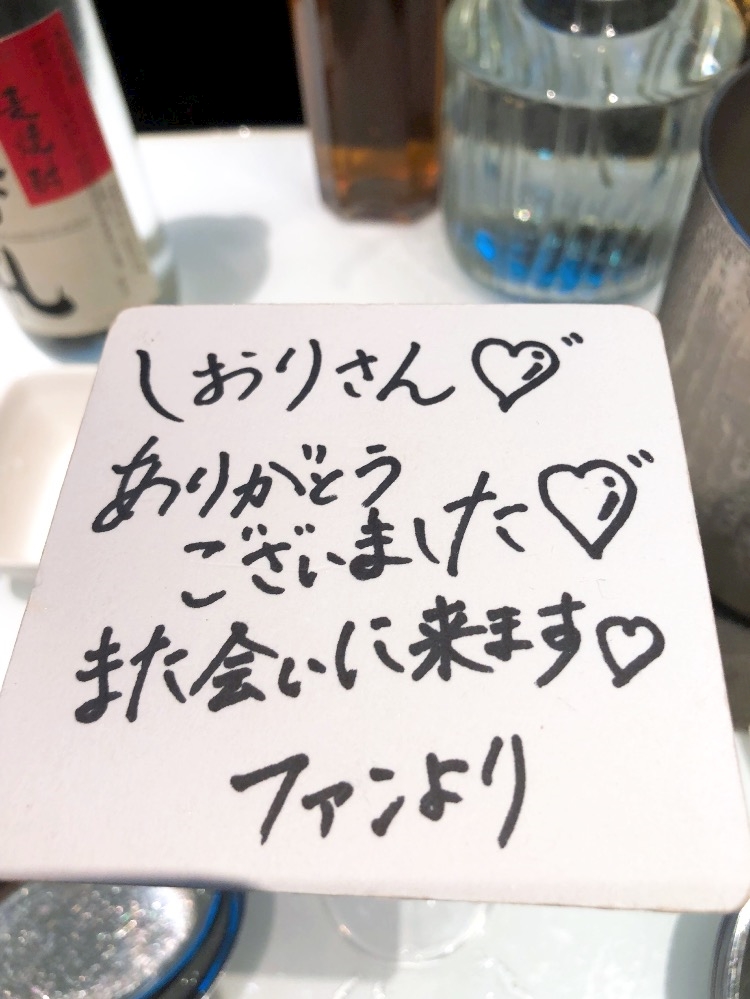 麦焼酎
しおりさん♡
ありがとう
ございました♡
また会いに来ます♡
ファンより